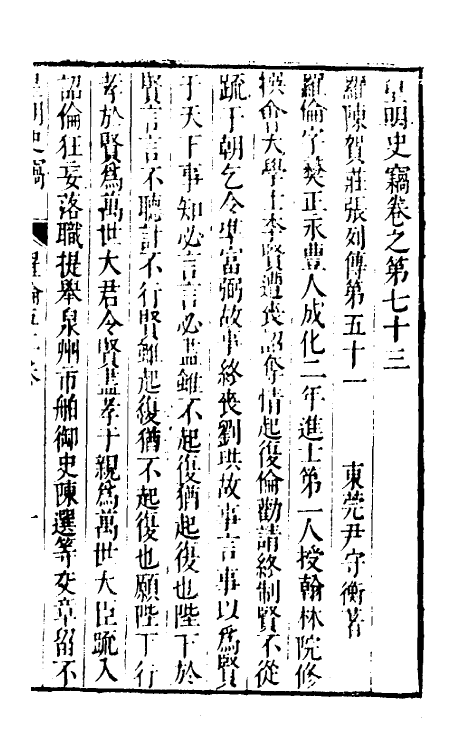 皇明史竊卷之第七十三
羅陳賀莊張列傳第五十一　東莞尹守衡著
羅倫字彝正永豊人成化二年進士第一人授翰林院修
撰會大學士李賢遭喪詔奪情起復倫勸請終制賢不從
疏于朝乞令準富弼故事終喪劉珙故事言事以爲賢
于天下事知必言言必盡雖不起復猶起復也陛下於
賢言言不聽計不行賢雖起復猶不起復也願陛下行
孝於賢爲萬世大君令賢盡孝于親爲萬世大臣疏入
詔倫狂妄落職提舉泉州市舶御史陳選等交章留不
皇明史竊